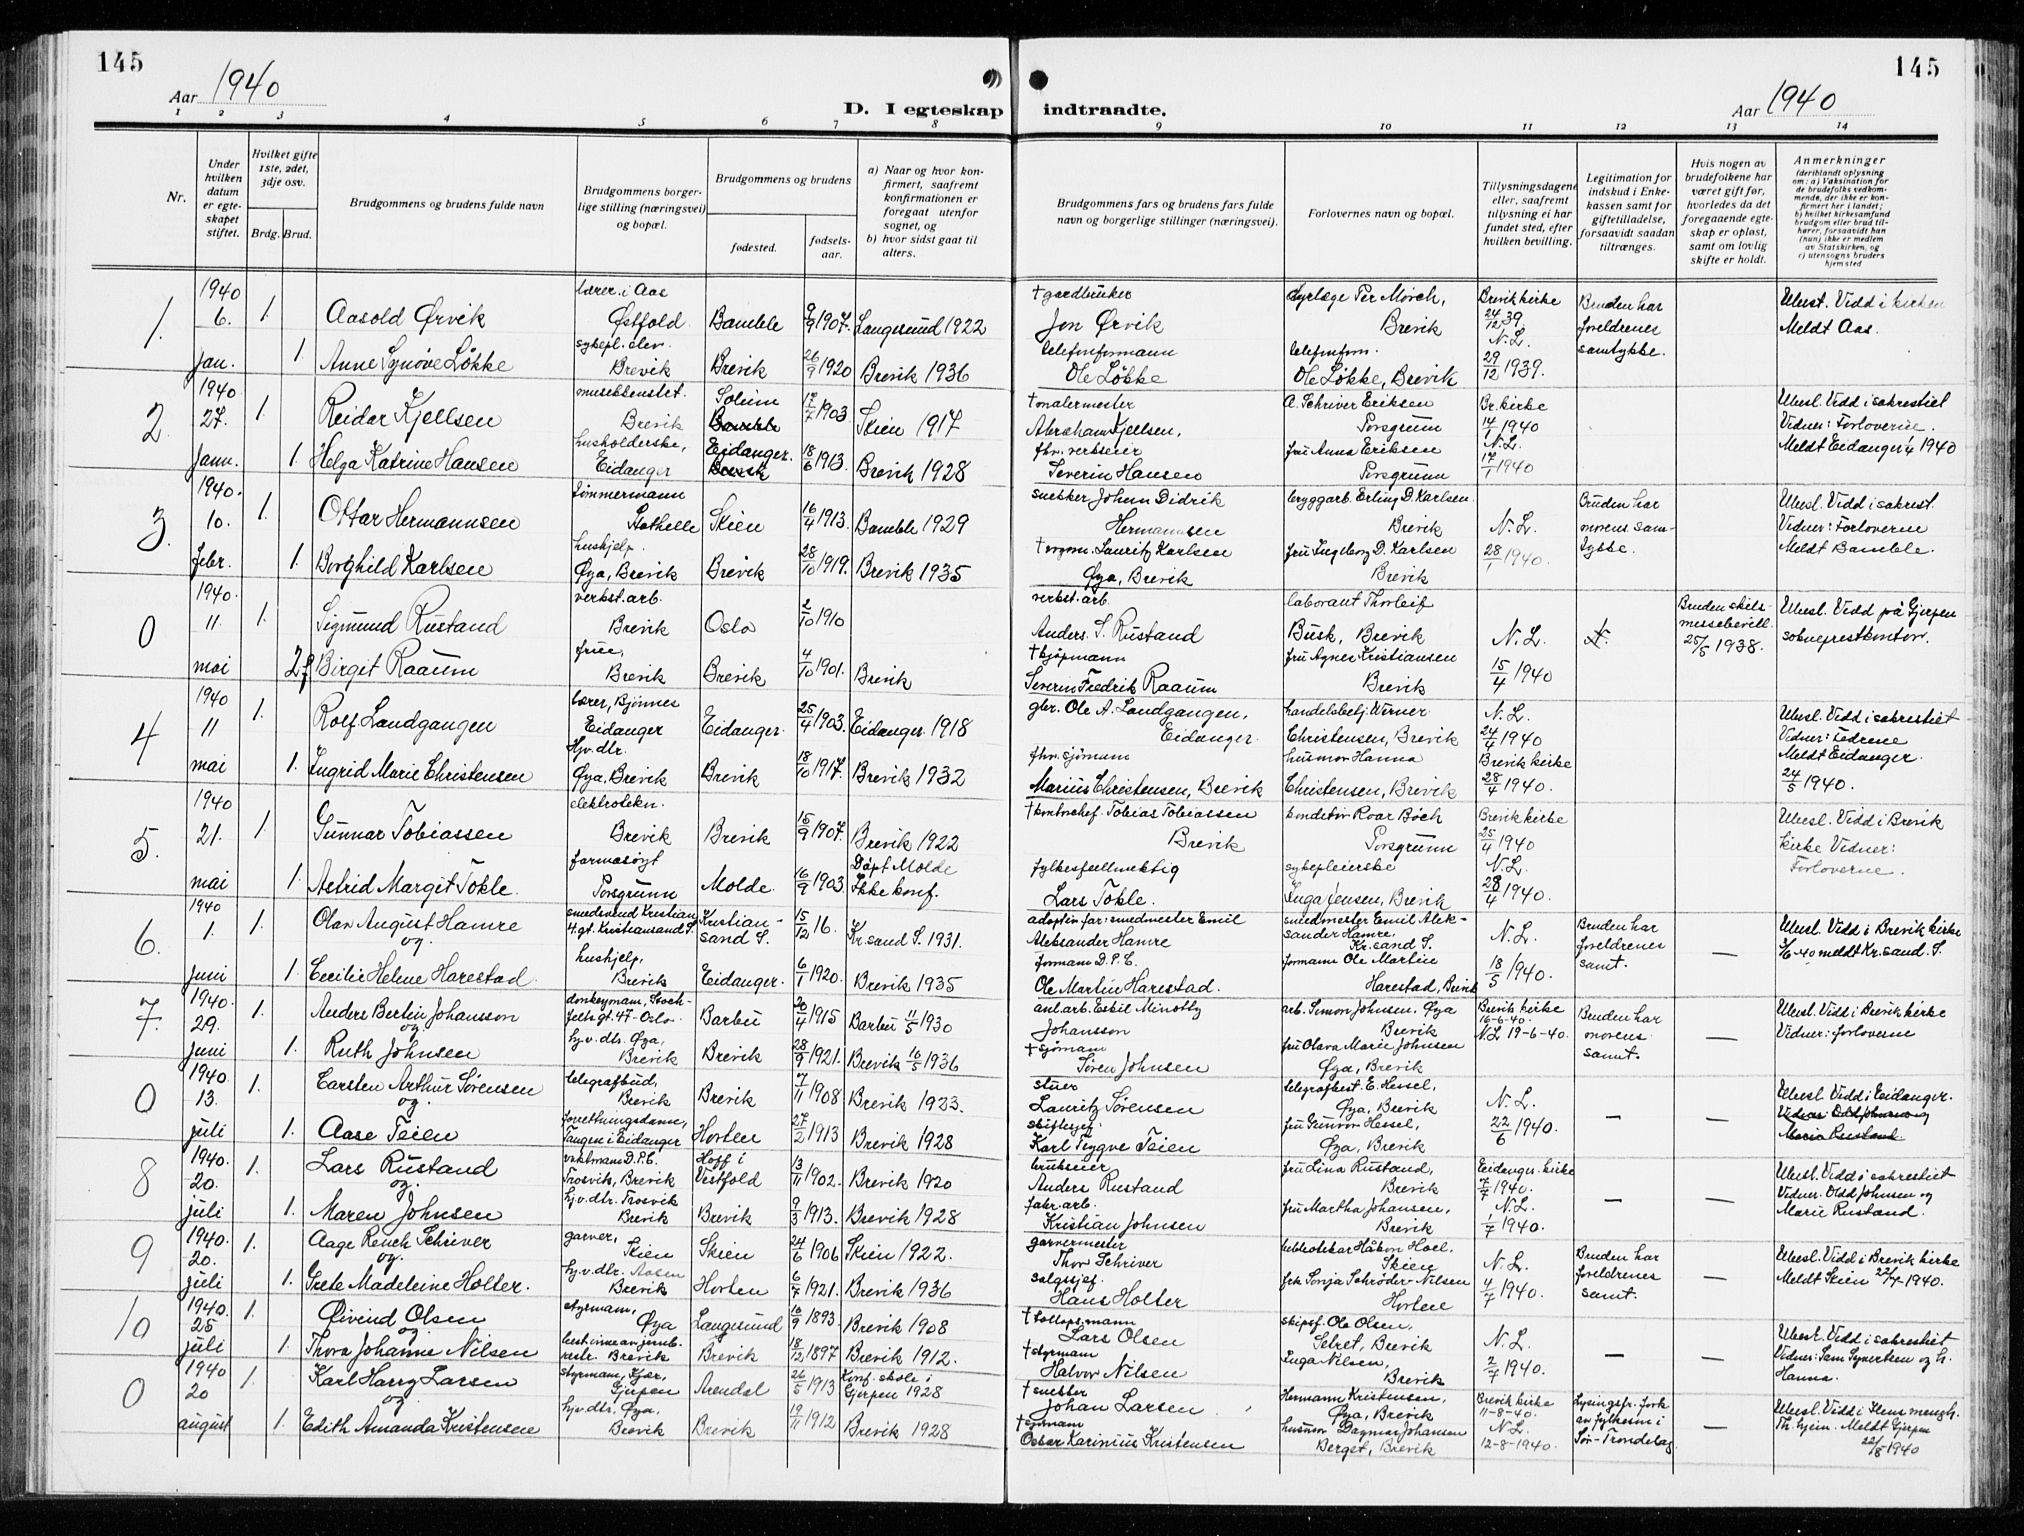 145
Aar 1940
D. I egteskap
1 2 3 4 5 6 7 8
Nr.
Under hvilken datum er egteskapet stiftet.
Hvilket gifte 1ste, 2det, 3dje osv.
Brdg. Brud.
Brudgommens og brudens fulde navn
Brudgommens borgerlige stilling (næringsvei) og bopæl.
Brudgommens og brudens
fødested.
fødselsaar.
a) Naar og hvor konfirmert, saafremt konfirmationen er foregaat utenfor sognet, og
b) hvor sidst gaat til alters.
145
Aar 1940
indtraadte.
9 10 11 12 13 14
Brudgommens fars og brudens fars fulde navn og borgerlige stillinger (næringsvei).
Forlovernes navn og bopæl.
Tillysningsdagene eller, saafremt tillysning ei har fundet sted, efter hvilken bevilling.
Legitimation for indskud i Enkekassen samt for giftetilladelse, forsaavidt saadan tiltrænges.
Hvis nogen av brudefolkene har været gift før, hvorledes da det foregaaende egteskap er opløst, samt om lovlig skifte er holdt.
Anmerkninger
(deriblandt oplysning om: a) Vaksination for de brudefolks vedkommende, der ikke er konfirmert her i landet;
b) hvilket kirkesamfund brudgom eller brud tilhører, forsaavidt han (hun) ikke er medlem av Statskirken, og
c) utensogns bruders hjemsted
1. 1940 6. Jan.
1. Aasold Ørvik lærer i Aas Østfold Bamble 9/9 1907. Langesund 1922
† gardbruker Jon Ørvik dyrlæge Per Mørch, Brevik Brevik kirke 24/12 39. Bruden har foreldrenes samtykke. Meldt Aas.
1 Anne Synøve Løkke sykepl. elev Brevik Brevik 26/9 1920 Brevik 1936
telefonformann Ole Løkke telefonform. Ole Løkke, Brevik N.L. 29/12 1939.
2. 1940 27. Jann.
1. Reidar Kjellsen Brevik Solum 17/7 1903 Skien 1917
† malermester Abraham Kjellsen, A. Schriver Eriksen Porsgrunn Br. kirke 14/1 1940 Vidd i sakrestiet Vidner: Forloverne.
1. Helga Katrine Hansen husholderske, Eidanger Eidanger. 18/6 1913. Brevik 1928
fhv. verkseier Severin Hansen fru Anna Eriksen Porsgrunn N.L. 17/1 1940 Meldt Eidanger 1940
3. 1940. 10. Febr.
1. Ottar Hermannsen tømmermann Stathelle Skien 16/4 1913. Bamble 1929
snekker Johan Didrik Hermannsen bryggarb. Erling D. Karlsen Brevik N.L. Bruden har morens samtykke. Vidd i sakrest. Vidner: Forloverne
1. Borghild Karlsen hushjelp. Øya, Brevik Brevik 28/10 1919. Brevik 1935
Lauritz Karlsen Øya, Brevik fru Ingeborg D. Karlsen Brevik 28/1 1940. Meldt Bamble.
0 1940. 11. mai
1. Sigmund Rustand verkst. arb. Brevik Oslo 2/10 1910
verkst. arb. Anders. S. Rustand laborant Thorleif Busk, Brevik N.L. Bruden skilsmissebevill. 25/5 1938. Vidd på Gjerpen sokneprestkontor.
2 f Birgit Raaum frue, Brevik Brevik 4/10 1901. Brevik
† kjøpmann Severin Fredrik Raaum fru Agnes Kristiansen Brevik 15/4 1940
4 1940 11 mai
1. Rolf Landgangen lærer, Bjønnes Eidanger Eidanger. 25/4 1903. Eidanger 1918
gbr. Ole A. Landgangen, Eidanger. handelsbetj. Werner Christensen, Brevik N.L. 24/4 1940 Vidd i sakrestiet Vidner: Fedrene
1. Ingrid Marie Christensen Hjv. dtr. Øya, Brevik Brevik 18/10 1917. Brevik 1932
fhv. sjømann Marius Christensen, Brevik husmor Hanna Christensen, Brevik Brevik kirke 28/4 1940. Meldt Eidanger. 24/5 1940.
5. 1940 21. mai
1. Gunnar Tobiassen elektrotekn. Brevik Brevik 15/9 1907. Brevik 1922
† kontorchef. Tobias Tobiassen Brevik konditor Roar Bøch Porsgrunn Brevik kirke 25/4 1940 Vidd i Brevik kirke Vidner: Forloverne.
1. Astrid Margit Tokle. farmasøyt Porsgrunn Molde. 16/9 1903. Døpt Molde Ikke konf.
fylkesfullmektig Lars Tokle. sykepleierske Inga Jensen, Brevik N.L. 28/4 1940.
6. 1940 1. juni
1. Olav August Hamre og smedsvend Kristian 4. gt. Kristiansand S. Kristiansand S. 15/12 16. Kr. sand S. 1931.
adoptiv far: smedmester Emil Aleksander Hamre smedmester Emil Aleksander Hamre, Kr. sand S. N.L. Bruden har foreldrenes samt. — Vidd i Brevik kirke 3/6-40 meldt Kr. sand. S.
1. Cecilie Helene Harestad hushjelp, Brevik Eidanger. 6/1 1920. Brevik 1935
formann D.P.C. Ole Martin Harestad. formann Ole Martin Harestad, Brevik 18/5 1940.
7. 1940. 29. juni
1. Anders Bertin Johansson og donkeymann, Stockfleths gt. 47 - Oslo. Barbu 20/4 1915 Barbu 11/5 1930
anl. arb. Eskil Minotty Johansson arb. Simon Johnsen, Øya Brevik Brevik kirke 16-6-40. Bruden har morens samt. — Vidd i Brevik kirke Vidner: forloverne
1. Ruth Johnsen hj. v. dtr. Øya, Brevik Brevik 28/9 1921. Brevik 10/5 1936
† sjømann Søren Johnsen fru Olava Marie Johnsen Øya, Brevik N.L 19-6-40.
0 1940. 13. juli
1. Carsten Arthur Sørensen og. telegrafbud, Brevik Brevik 7/11 1908 Brevik 1923.
stuer Lauritz Sørensen telegrafbest. E. Hessel, Øya, Brevik N.L. — — Vidd i Eidanger.
1. Aase Teien forretningsdame, Tangen i Eidanger Horten 27/2 1913 Brevik 1928
Karl Trygve Teien fru Gunvor Hessel, Øya, Brevik 22/6 1940.
8 1940. 20. juli
1. Lars Rustand og. vaktmann D.P.C. Trosvik, Brevik Hoff i Vestfold 13/11 1902. Brevik 1920
brukseier Anders Rustand fru Lina Rustand, Brevik Eidanger kirke 7/7 1940. — — Vidd i sakrestiet Vidner. Odd Johnsen og Marie Rustand.
1. Maren Johnsen hj. v. dtr. Trosvik Brevik Brevik 9/3 1913. Brevik 1928
fabr. arb. Kristian Johnsen fru Martha Johansen, Brevik N.L. 1/7 1940.
9 1940. 20. juli
1. Aage Rench Schriver og. garver, Skien Skien 24/6 1906 Skien 1922.
garvermester Thor Schriver bibliotekar Håkon Hoel, Skien N.L. Bruden har foreldrenes samt. — Vidd i Brevik kirke Meldt Skien 22/7-1940.
1. Grete Madeleine Holter. hj. v. dtr. Brevik Horten 6/7 1921. Brevik 1936
salgssjef. Hans Holter frk Sonja Schrøder-Nilsen Horten 4/7 1940.
10 1940. 25 juli
1. Øivind Olsen og styrmann, Øya Langesund 16/9 1893. Brevik 1908
Lars Olsen skipsf. Ole Olsen, Setret, Brevik N.L. — — Vidd i sakrestiet
1. Thora Johanne Nilsen Brevik Brevik 18/12 1897 Brevik 1912.
† styrmann Halvor Nilsen Inga Nilsen, Brevik 2/7 1940. Vidner: Sam Syvertsen og h. Hanna.
0 1940 20 august
1. Karl Harry Larsen og styrmann, Kjær, Gjerpen Arendal 26/5 1913 Konf. skole i Gjerpen 1928
Johan Larsen Hermann Kristensen, Øya, Brevik Brevik kirke 11-8-40. av fylkesm i Sør-Trøndelag — Th. hjem. Meldt Gjerpen
1. Edith Amanda Kristensen hj. v. dtr. Øya. Brevik Brevik 19/11 1912 Brevik 1928
Oskar Karinius Kristensen husmor Dagmar Johansen Berget, Brevik N.L. 12-8-1940. 22/8 1940